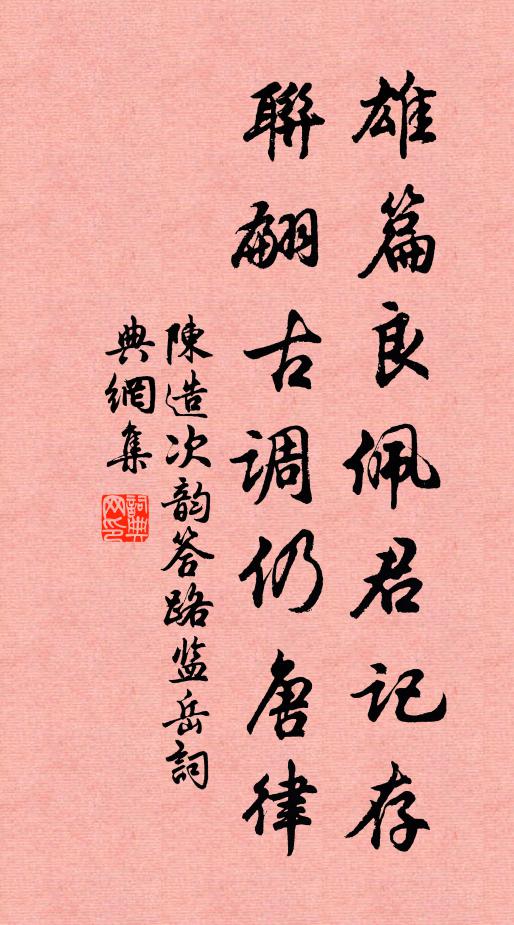 雄篇良佩君記存
聯翩古調仍唐律
陳造次韵答路监岳詞
典網集
詞典網印